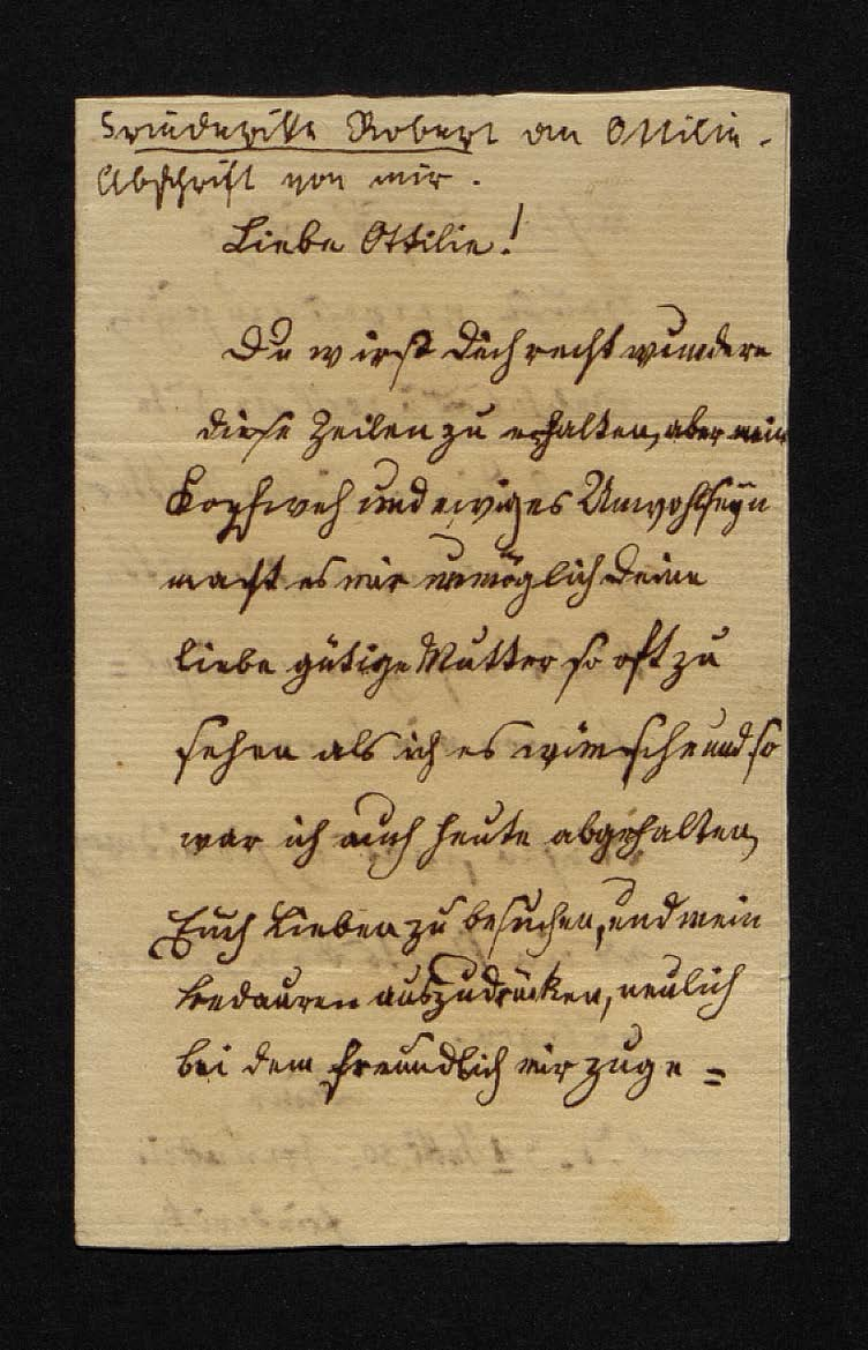 Friederike Robert an Ottilie.
Abschrift von mir.
Liebe Ottilie!
Du wirst Dich recht wundern
diese Zeilen zu erhalten, aber mein
Kopfweh und ewiges Unwohlseyn
macht es mir unmöglich Deine
liebe gütige Mutter so oft zu
sehen als ich es wünsche und so
war ich auch heute abgehalten,
Euch Lieben zu besuchen, und mein
Bedauren auszudrücken, neulich
bei dem freundlich mir zuge=